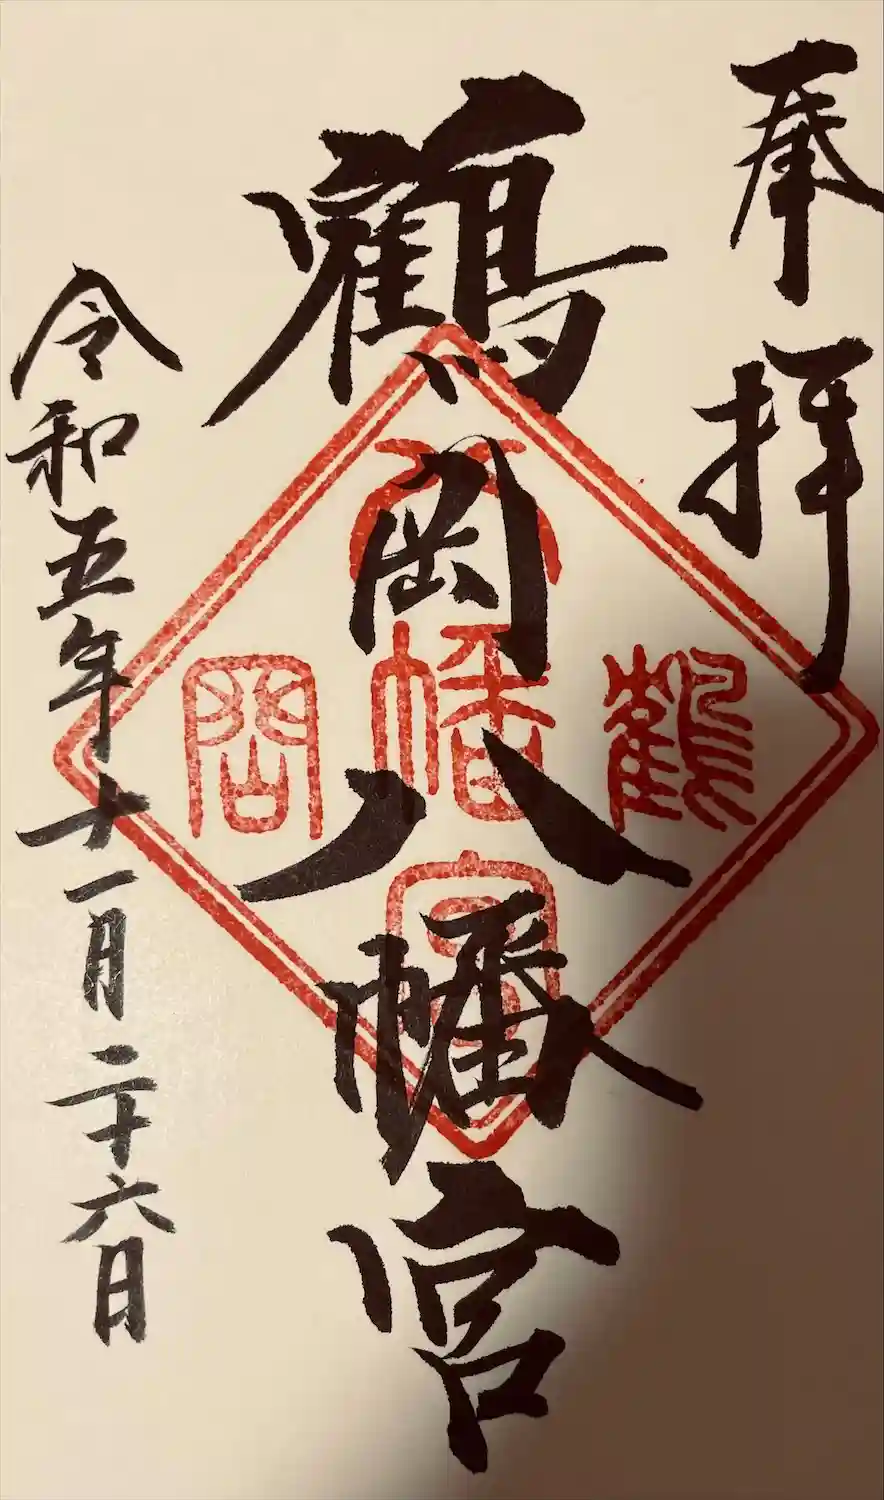 奉拝
鶴岡八幡宮
令和五年十一月二十六日
鶴
八幡宮
岡